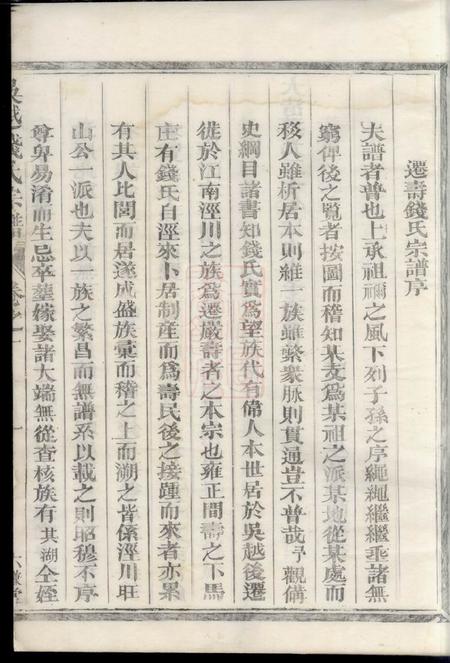 遷壽錢氏宗譜序
夫譜者普也上承祖禰之風下列子孫之序繩繩繼繼垂諸無
窮俾後之覽者按圖而稽知某支爲某祖之派某地從某處而
移人雖析居本則維一族雖繁衆脉則貫通豈不普哉予觀備
史綱目諸書知錢氏實爲望族代有偉人本世居於吳越後遷
徙於江南涇川之族爲遷嚴壽者之本宗也雍正間壽之下馬
庄有錢氏自涇來卜居制産而爲壽民後之接踵而來者亦累
有其人比閭而居遂成盛族彙而稽之上而溯之皆係涇川旺
山公一派也夫以一族之繁昌而無譜系以載之則昭穆不序
尊卑易淆而生忌卒塟嫁娶諸大端無從查核族有其湖仝姪
吳越錢氏宗譜 卷之一